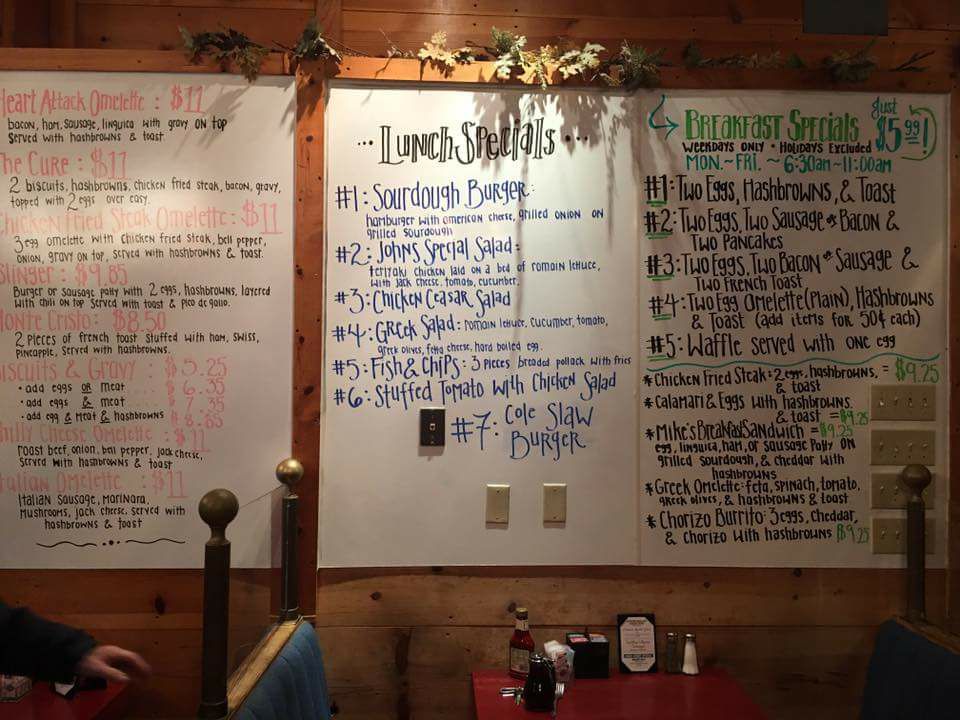 Heart Attack Omelette : $11
bacon, ham, sausage, linguica with gravy on top
served with hashbrowns & toast.
The Cure : $11
2 biscuits, hashbrowns, chicken fried steak, bacon, gravy,
topped with 2 eggs over easy.
Chicken Fried Steak Omelette : $11
3 egg omelette with chicken fried steak, bell pepper,
onion, gravy on top, served with hashbrowns & toast.
Slinger : $9.85
Burger or Sausage patty with 2 eggs, hashbrowns, layered
with chili on top Served with toast & pico de galio.
Monte Cristo : $8.50
2 pieces of french toast stuffed with ham, swiss,
Pineapple, Served with hashbrowns.
Biscuits & Gravy : $5.25
• add eggs OR meat $ 6.35
• add eggs & meat $ 7.35
• add egg & meat & hashbrowns $ 8.35
Philly Cheese Omelette : $11
roast beef, onion, bell pepper, jack cheese,
Served with hashbrowns & toast
Italian Omelette : $11
Italian Sausage, Marinara,
Mushrooms, jack cheese, served with
hashbrowns & toast
Lunch Specials
#1: Sourdough Burger:
hamburger with american cheese, grilled onion on
grilled sourdough
#2: Johns Special Salad:
teriyaki chicken laid on a bed of romain lettuce,
with jack cheese, tomato, cucumber.
#3: Chicken Ceasar Salad
#4: Greek Salad: romain lettuce, cucumber, tomato,
greek olives, feta cheese, hard boiled egg.
#5: Fish & Chips: 3 pieces breaded pollack with fries
#6: Stuffed Tomato with Chicken Salad
#7: Cole Slaw
Burger
Breakfast Specials Just $5.99!
Weekdays Only • Holidays Excluded
Mon. ~ Fri. ~ 6:30am ~ 11:00am
#1: Two Eggs, Hashbrowns, & Toast
#2: Two Eggs, Two Sausage or Bacon &
Two Pancakes
#3: Two Eggs, Two Bacon or Sausage &
Two French Toast
#4: Two Egg Omelette (Plain), Hashbrowns
& Toast (add items for 50¢ each)
#5: Waffle served with one egg
* Chicken Fried Steak: 2 eggs, hashbrowns, = $9.25
& toast
* Calamari & Eggs with hashbrowns.
& toast = $9.25
* Mike's Breakfast Sandwich = $9.25
egg, linguica, ham, or sausage patty on
grilled sourdough, & cheddar with
hashbrowns
* Greek Omelette: feta, spinach, tomato,
greek olives, & hashbrowns & toast
* Chorizo Burrito: 3 eggs, cheddar,
& Chorizo with hashbrowns $9.25